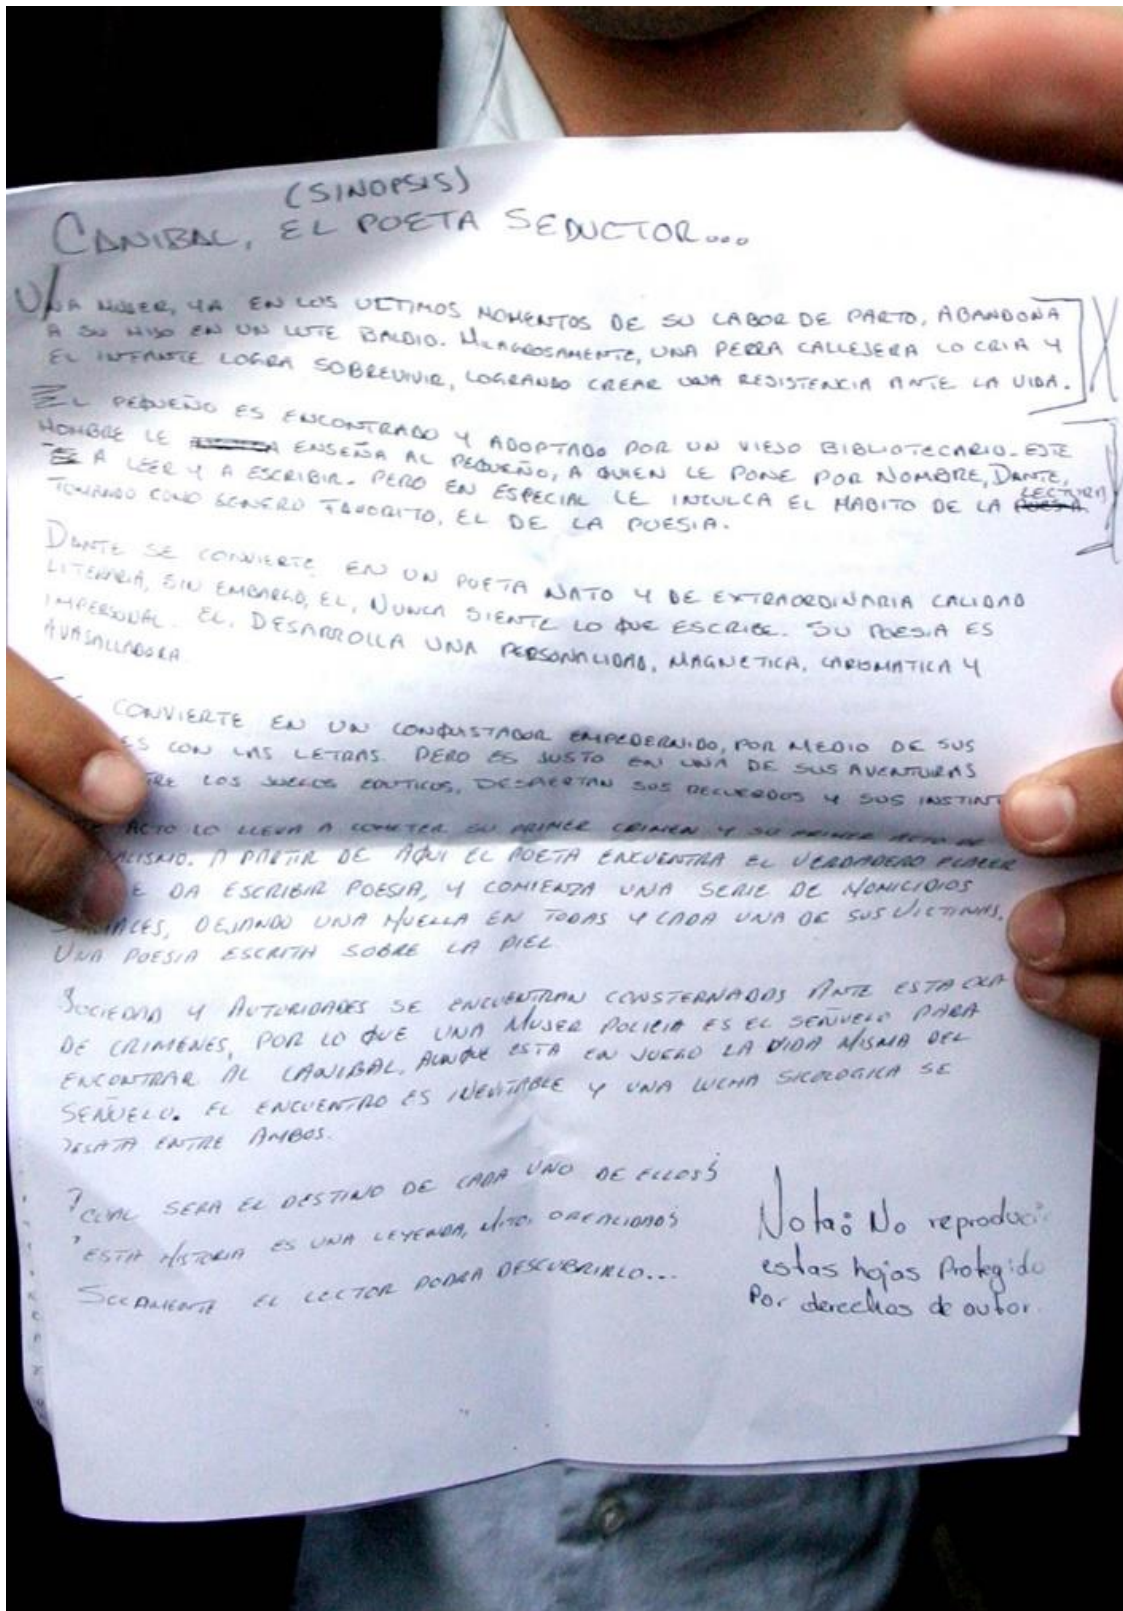 (SINOPSIS)
CANIBAL, EL POETA SEDUCTOR...
UNA MUJER, YA EN LOS ULTIMOS MOMENTOS DE SU LABOR DE PARTO, ABANDONA
A SU HIJO EN UN LOTE BALDIO. MILAGROSAMENTE, UNA PERRA CALLEJERA LO CRIA Y
EL INFANTE LOGRA SOBREVIVIR, LOGRANDO CREAR UNA RESISTENCIA ANTE LA VIDA.
EL PEQUEÑO ES ENCONTRADO Y ADOPTADO POR UN VIEJO BIBLIOTECARIO. ESTE
HOMBRE LE ENSEÑA AL PEQUEÑO, A QUIEN LE PONE POR NOMBRE, DANTE,
A LEER Y A ESCRIBIR. PERO EN ESPECIAL LE INCULCA EL HABITO DE LA LECTURA
TOMANDO COMO GENERO FAVORITO, EL DE LA POESIA.
DANTE SE CONVIERTE EN UN POETA NATO Y DE EXTRAORDINARIA CALIDAD
LITERARIA, SIN EMBARGO, EL, NUNCA SIENTE LO QUE ESCRIBE. SU POESIA ES
IMPERSONAL. EL, DESARROLLA UNA PERSONALIDAD, MAGNETICA, CARISMATICA Y
AVASALLADORA
CONVIERTE EN UN CONQUISTADOR EMPEDERNIDO, POR MEDIO DE SUS
ES CON LAS LETRAS. PERO ES JUSTO EN UNA DE SUS AVENTURAS
TRE LOS JUEGOS EROTICOS, DESPIERTAN SUS RECUERDOS Y SUS INSTINT
ACTO LO LLEVA A COMETER SU PRIMER CRIMEN Y SU PRIMER ACTO DE
ALISMO. A PARTIR DE AQUI EL POETA ENCUENTRA EL VERDADERO PLACER
E DA ESCRIBIR POESIA, Y COMIENZA UNA SERIE DE HOMICIDIOS
IALES, DEJANDO UNA HUELLA EN TODAS Y CADA UNA DE SUS VICTIMAS,
UNA POESIA ESCRITA SOBRE LA PIEL
SOCIEDAD Y AUTORIDADES SE ENCUENTRAN CONSTERNADOS ANTE ESTA OLA
DE CRIMENES, POR LO QUE UNA MUJER POLICIA ES EL SEÑUELO PARA
ENCONTRAR AL CANIBAL, AUNQUE ESTA EN JUEGO LA VIDA MISMA DEL
SEÑUELO. EL ENCUENTRO ES INEVITABLE Y UNA LUCHA SICOLOGICA SE
DESATA ENTRE AMBOS.
¿CUAL SERA EL DESTINO DE CADA UNO DE ELLOS?
¿ESTA HISTORIA ES UNA LEYENDA, MITO, O REALIDAD?
SOLAMENTE EL LECTOR PODRA DESCUBRIRLO...
Nota: No reproducir
estas hojas Protegido
Por derechos de autor.